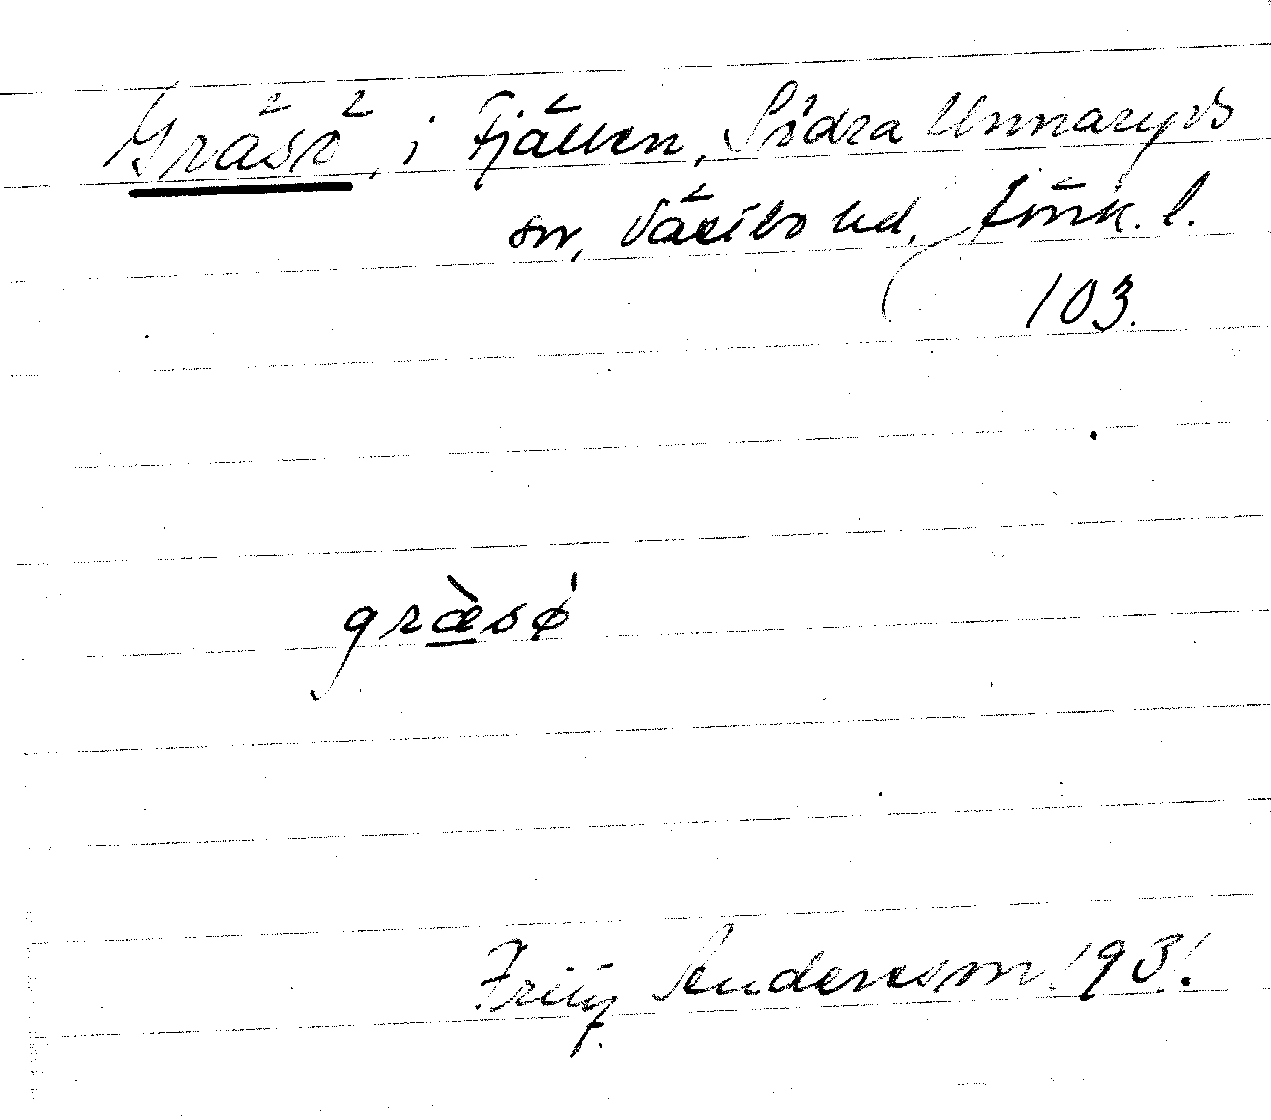 Gräsö, i Fjällen, Södra Unnaryds
sn, Västbo hd, Jönk. l.
103.
græ̀sǿ
Fritz Andersson 1931